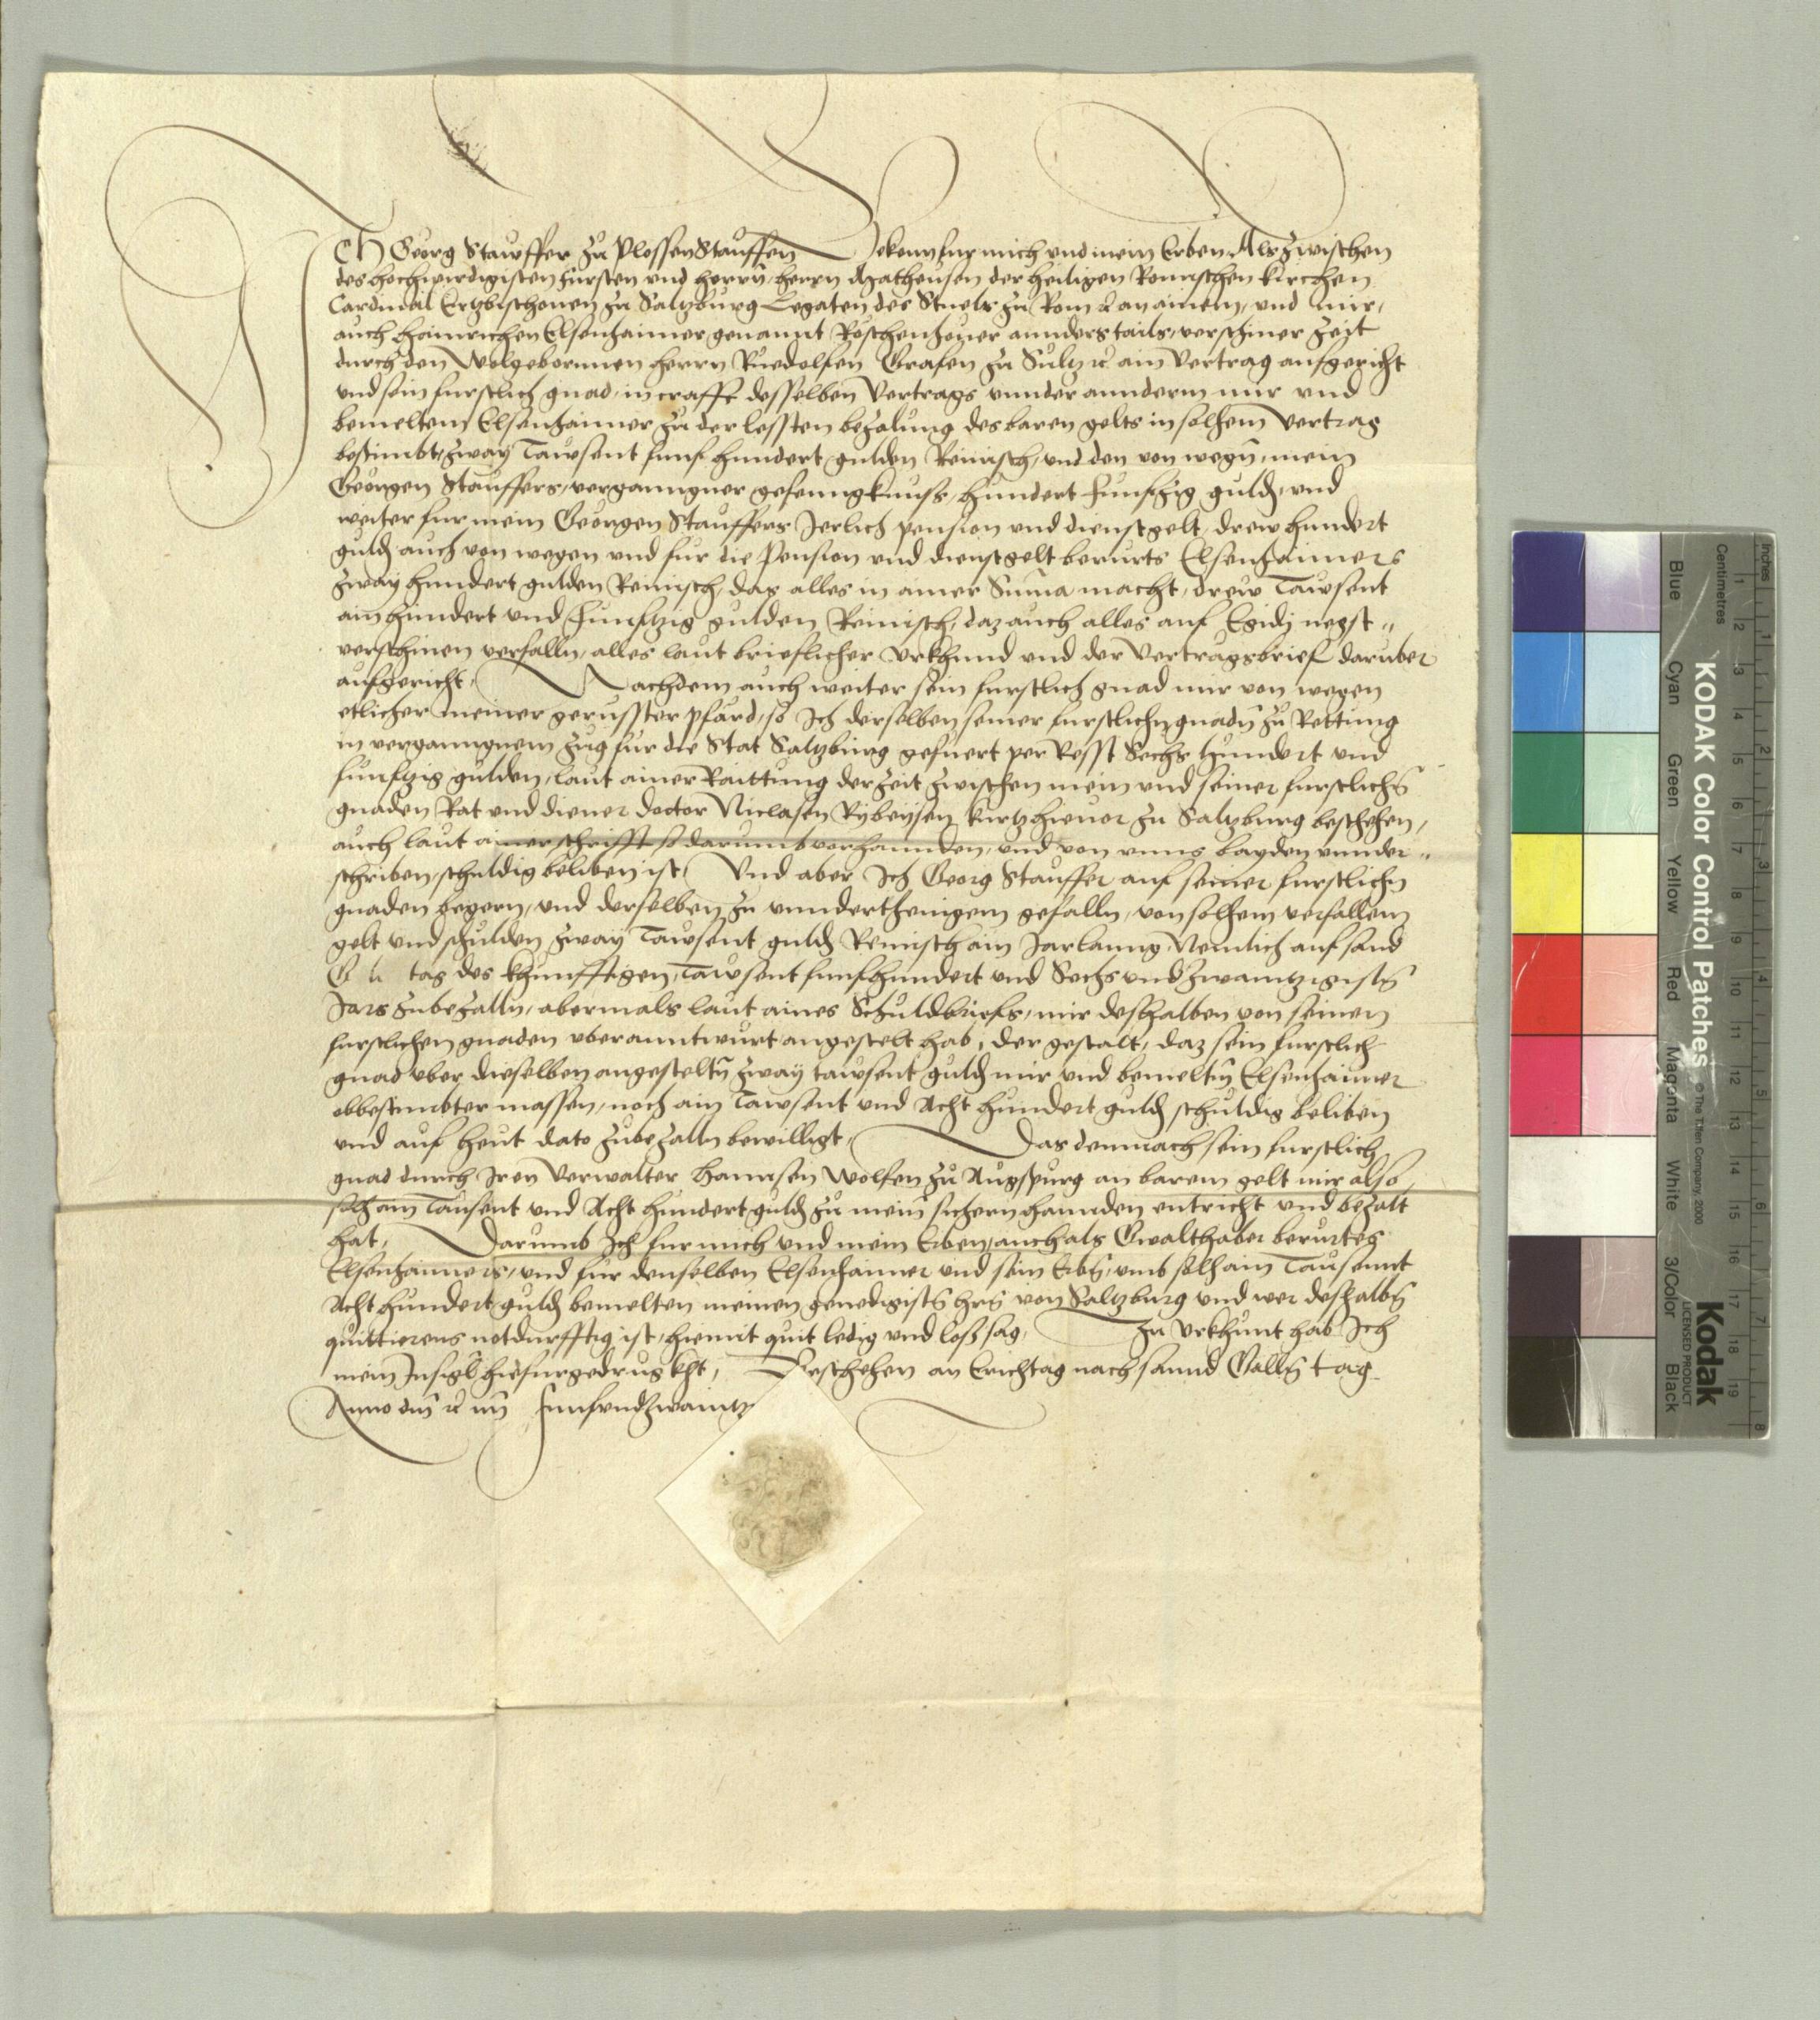 ICH Georg Stauffer zu PlossenStauffen Bekenn fur mich und mein Erben, Als zwischen
des hochwirdigisten Fursten und herrn herrn Matheusen der heiligen Romischen Kirchen
Cardinal Ertzbischouen zu Saltzburg Legaten des Stuels zu Rom ꝛc an ainem, und mir,
auch Hainrichen Elsenhaimer genannt Roschenhouer annders tails, verschiner zeit
durch den Wolgebornnen herrn Ruedolfen Grafen zu Sultz ꝛc ain Vertrag aufgericht
und sein furstlich gnad, in crafft desselben Vertrags unnder annderm mir und
bemeltem Elsenhaimer zu der lessten bezalung des baren gelts in solhem Vertrag
bestimbt, zway Tawsent funf hundert gulden Reinisch, und den von wegn̄, mein
Georgen Stauffers, verganngner gefenngknuss, hundert Funfzig guld, und
weiter fur mein Georgen Stauffers Jerlich pension und dienstgelt, drew hundert
guld auch von wegen und fur die Pension und dienstgelt berurts Elsenhaimers
zway hundert gulden Reinisch, das alles in ainer Sum̄a macht, drew Tawsent
ain hundert und Funfftzig gulden Reinisch, daz auch alles auf Egidij negst„
verschinen verfalln, alles laut brieflicher Urkhund und der Vertragsbrief daruber
aufgericht, Nachdem auch weiter sein furstlich gnad mir von wegen
etlicher meiner gerusster pfard, so Ich derselben seiner furstlichn gnadn̄ zu Rettung
in verganngnem zug fur die Stat Saltzburg gefuert per Resst Sechs hundert und
funfftzig gulden, laut ainer Raittung der zeit zwischen mein und seiner furstlichn̄
gnaden Rat und diener doctor Niclasen Rybeysen Kurtzhieuer zu Saltzburg beschehen,
auch laut ainer schrifft so darumb vorhannden, und von unns bayden unnder„
schriben, schuldig beliben ist, Und aber Ich Georg Stauffer auf seiner furstlichn
gnaden begern, und derselben zu unnderthenigem gefalln, von solhem verfallem
gelt und schulden zway Tawsent guld Reinisch ain Jarlanng Nemlich auf sand
G tag des khunfftigen Tawsent funfhundert und Sechsundzwaintzigistn̄
Jars zubezalln, abermals laut aines Schuldbriefs, mir deshalben von seinen
furstlichen gnaden uberanntwurt angestelt hab, der gestalt, daz sein furstlich
gnad uber dieselben angesteltn̄ zway tawsent guld mir und bemeltm̄ Elsenhaimer
obbestimbter massen, noch ain Tawsent und Acht hundert guld schuldig beliben
und auf heut dato zubezalln bewilligt, Das demnach sein furstlich
gnad durch Iren Verwalter Hannsen Wolfen zu Augspurg an barem gelt mir also
solh ain Tausent und Acht hundert guld zu mein sichern hannden entricht und bezalt
hat, Darumb Ich fur mich und mein Erben, auch als Gwalthaber berurtes
Elsenhaimers, und fur denselben Elsenhaimer und sein Erbn̄, umb solh ain Tausennt
Acht hundert guld bemelten meinen genedigistn̄ hrn̄ von Saltzburg und wer deshalbn̄
quittierens notdurfftig ist, hiemit quit ledig und loss sag, Zu Urkhunt hab Ich
mein Insigl hiefurgedrugkht, Beschehen an Erichtag nach sannd Galln̄ tag
Anno dm̄ ꝛc im̄ Funfundzwaintz
KODAK Color Control Patches
© The Tiffen Company, 2000
Kodak
LICENSED PRODUCT
Inches 1 2 3 4 5 6 7 8
Centimetres 1 2 3 4 5 6 7 8 9 10 11 12 13 14 15 16 17 18 19
Blue Cyan Green Yellow Red Magenta White 3/Color Black